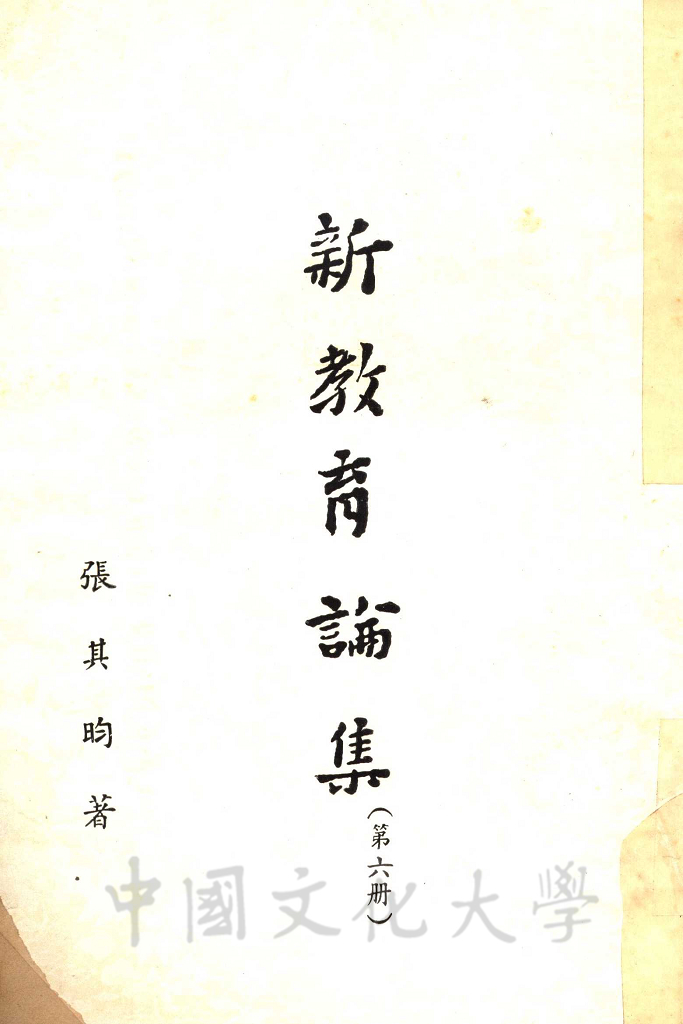 新教育論集
(第六册)
張其昀著
中國文化大學